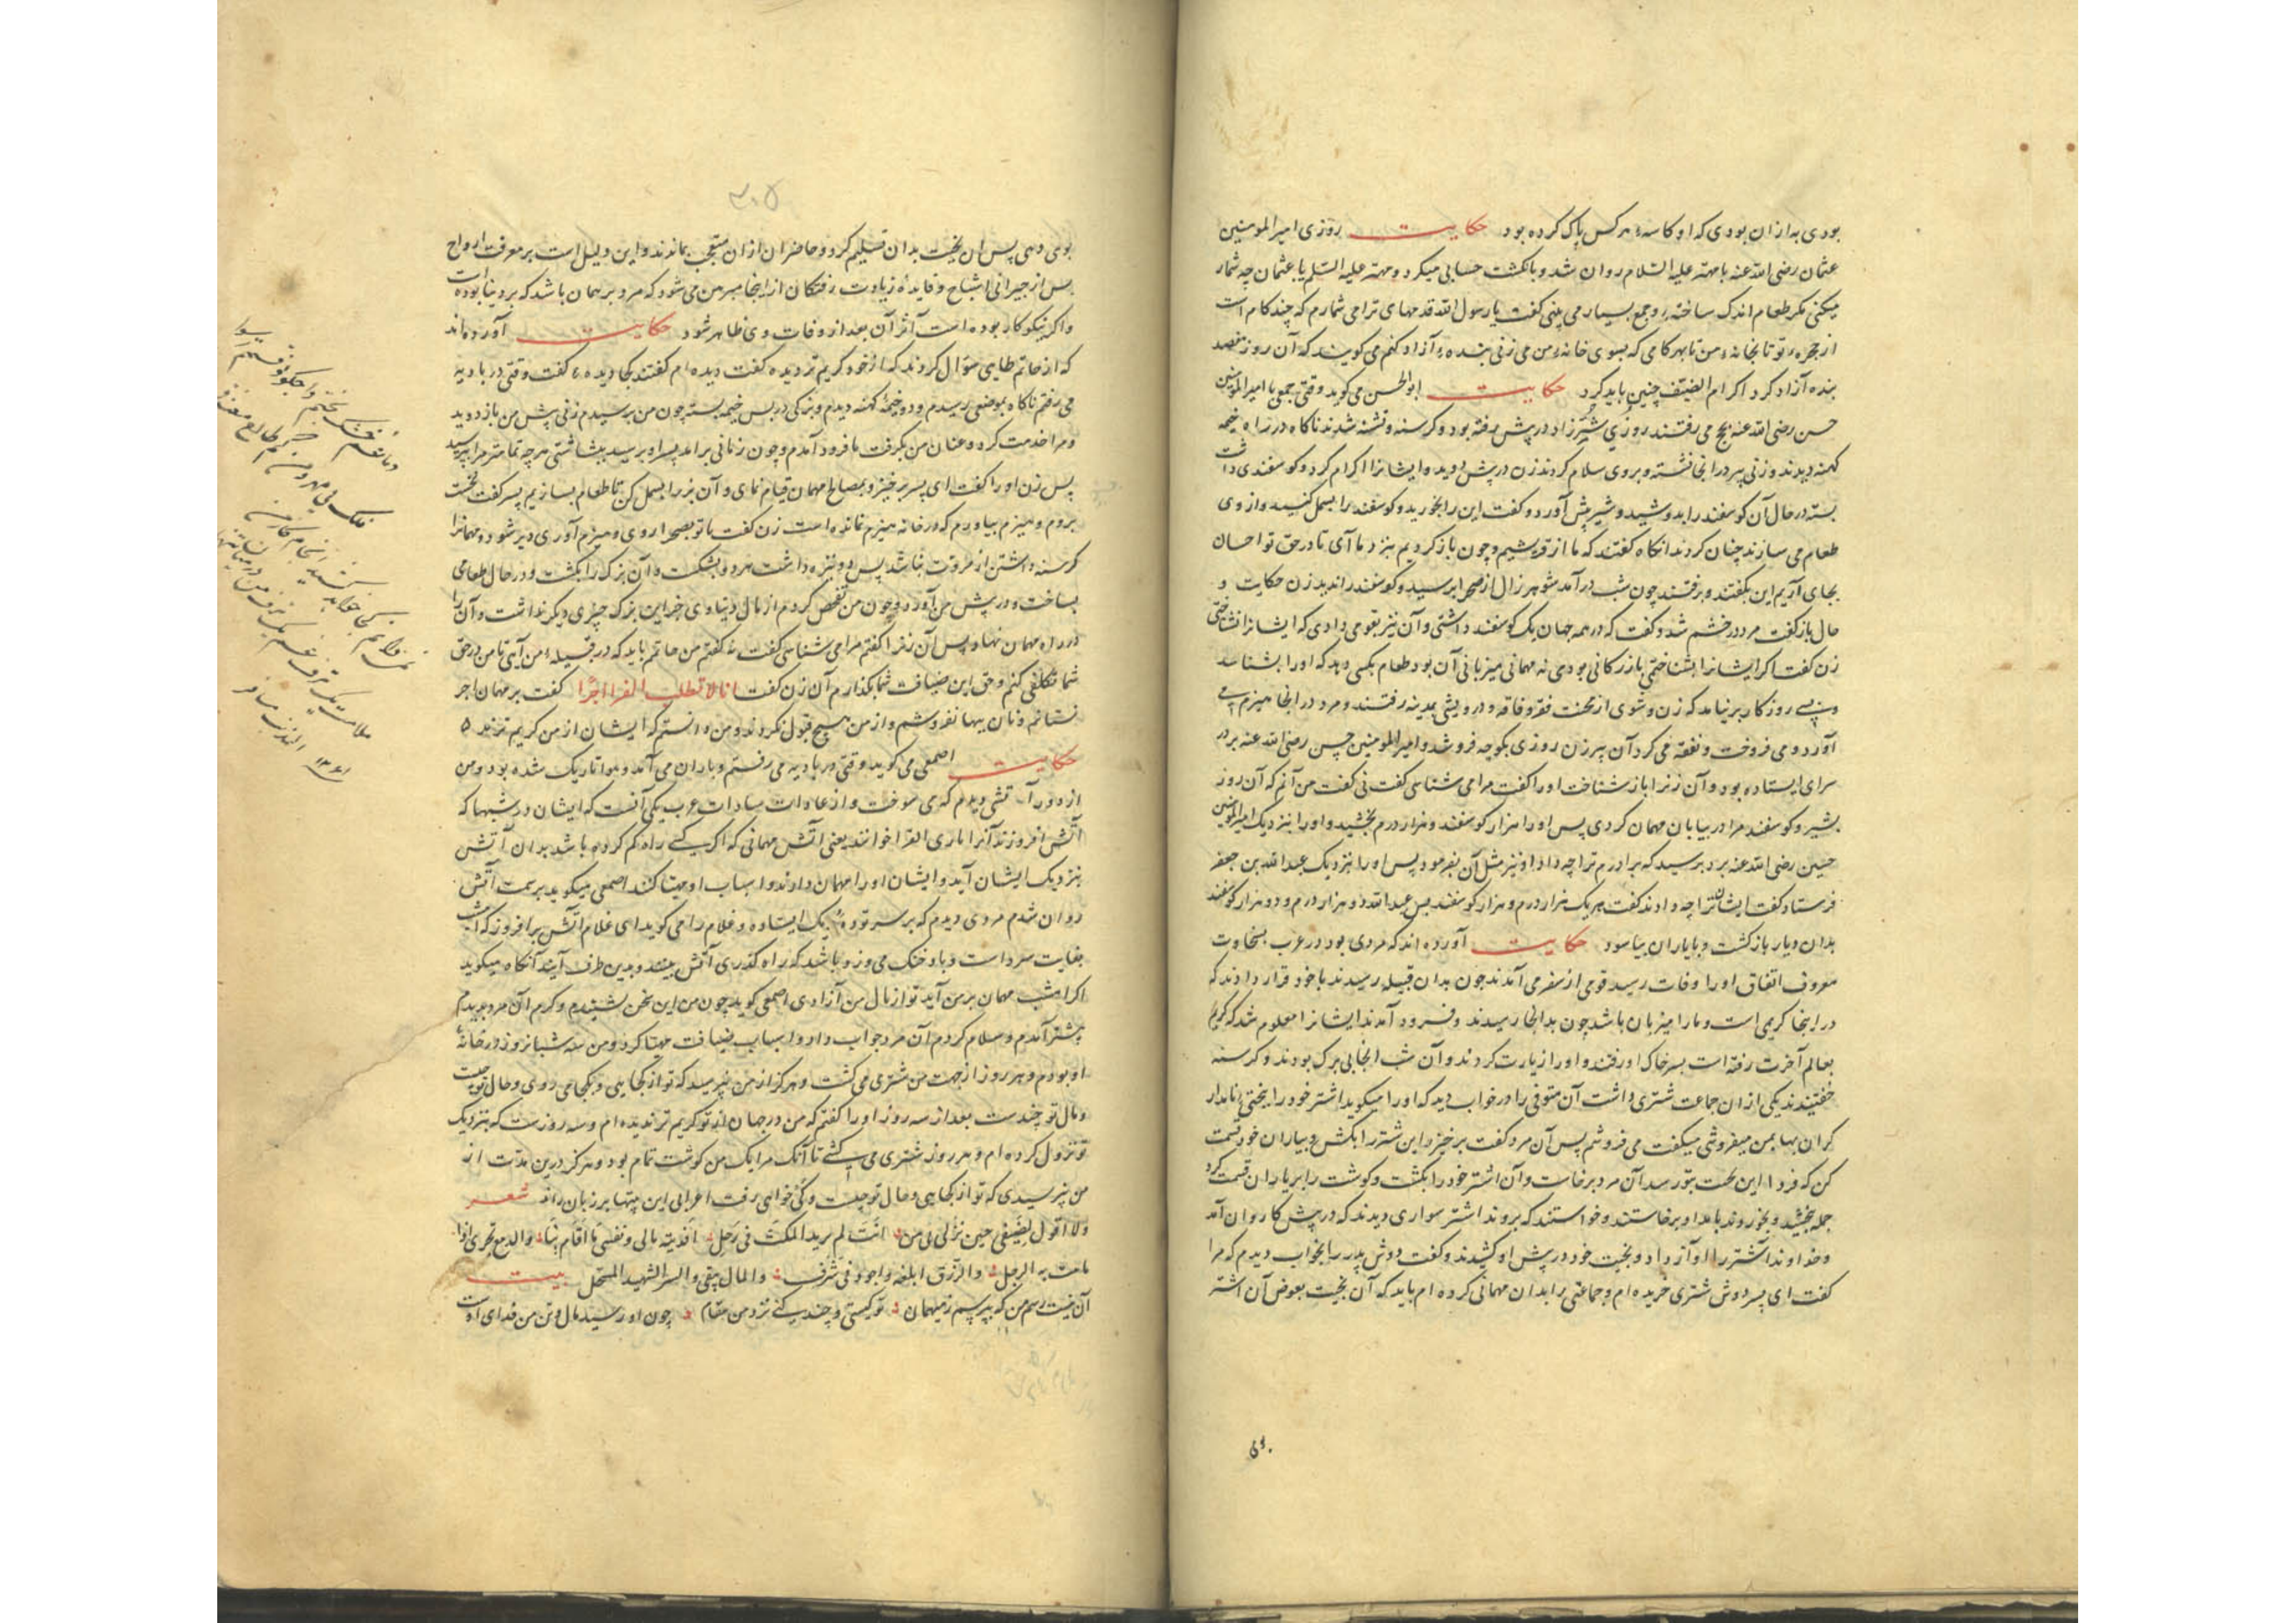 بودی به از ان بودی که او کاسهٔ هر کس پاک کرده بود حکایت روزی امیر المومنین
عثمان رضی الله عنه با مهتر علیه السّلام روان شد و بانکشت حسابی میکرد و مهتر علیه السّلم یا عثمان چه شمار
میکنی مکر طعام اندک ساخته و جمع بسیار می بینی کفت یا رسول الله قدمهای ترا می شمارم که چند کام است
از حجرهٔ تو تا بخانهٔ من تا بهر کامی که بسوی خانهٔ من می زنی بندهٔ آزاد کنم می کویند که آن روز هفصد
بنده آزاد کرد اکرام الضیف چنین باید کرد حکایت ابو الحسن می کوید وقتی جمعی با امیر المومنین
حسن رضی الله عنه بحج می رفتند روزی شتر زاد در پیش رفته بود و کرسنه و تشنه شدند ناکاه در راه خیمه
کهنه دیدند و زنی پیر در انجا نشسته بروی سلام کردند زن در پیش دوید و ایشانرا اکرام کرد و کوسفندی داشت
بسته در حال آن کوسفند را بدوشید و شیر پیش آورد و کفت این را بخورید و کوسفند را بسمل کنید و از وی
طعام می سازند چنان کردند انکاه کفتند که ما از قریشیم و چون باز کردیم بنزد ما آی تا در حق تو احسان
بجای آریم این بکفتند و برفتند چون شب در آمد شوهر زال از صحرا برسید و کوسفند را ندید زن حکایت و
حال باز کفت مرد در خشم شد و کفت که در همه جهان یک کوسفند داشتی و آن نیز بقومی دادی که ایشانرا نشناختی
زن کفت اکر ایشانرا بشناختمی بازرکانی بودی نه مهمانی میزبانی آن بود طعام بکسی دهد که او را نشناسد
بسی روزکار بر نیامد که زن و شوی از محنت فقر و فاقه و درویشی بمدینه رفتند و مرد در انجا هیزم می
آورد و می فروخت و نفقه می کرد آن پیر زن روزی بکوچه فرو شد و امیر المومنین حسن رضی الله عنه بر در
سرای ایستاده بود و آن زنرا باز شناخت او را کفت مرا می شناسی کفت نی کفت من آنم که آن روز
بشیر و کوسفند مرا در بیابان مهمان کردی پس او را هزار کوسفند و هزار درم بخشید و او را بنزدیک امیر المومنین
حسین رضی الله عنه برد پرسید که برادرم ترا چه داد او نیز مثل آن بفرمود پس او را بنزدیک عبد الله بن جعفر
فرستاد کفت ایشان ترا چه دادند کفت هر یک هزار درم و هزار کوسفند پس عبد الله دو هزار درم و دو هزار کوسفند
بدان دیار باز کشت و بایاران بیاسود حکایت آورده اند که مردی بود در عرب بسخاوت
معروف اتفاق او را وفات رسید قومی از سفر می آمدند چون بدان قبیله رسیدند با خود قرار دادند که
در اینجا کریمی است و ما را میزبان باشد چون بدانجا رسیدند و فرود آمدند ایشانرا معلوم شد که کریم
بعالم آخرت رفته است بسر خاک او رفتند و او را زیارت کردند و آن شب انجا بی برک بودند و کرسنه
خفتیدند یکی از ان جماعت شتری داشت آن متوفی را در خواب دید که او را میکوید اشتر خود را ببختی نامدار
کران بها بمن میفروشی میکفت می فروشم پس آن مرد کفت برخیز و این شتر را بکش و بیاران خود قسمت
کن که فردا این بخت بتو رسد آن مرد برخاست و آن اشتر خود را بکشت و کوشت را بر یاران قسمت کرد
جمله بخشید و بخوردند بامداد برخاستند و خواستند که بروند اشتر سواری دیدند که در پیش کاروان آمد
و خداوند اشتر را او آواز داد و بخت خود در پیش او کشید و کفت دوش پدر را بخواب دیدم که مرا
کفت ای پسر دوش شتری خریده ام و جماعتی را بدان مهمانی کرده ام باید که آن بخیت بعوض آن اشتر
۳۰۵
بوی دهی پس ان بخیت بدان تسلیم کرد و حاضران از ان متعجب بماندند و این دلیل است بر معرفت ارواح
پس از جیرانی اشباح و فایدهٔ زیارت رفتکان از اینجا مبرهن می شود که مرد بر همان باشد که بر دنیا بوده است
و اکر نیکوکار بوده است آثر آن بعد از وفات وی ظاهر شود حکایت آورده اند
که از حاتم طایی سؤال کردند که از خود کریم تر دیدهٔ کفت دیده ام کفتند کجا دیدهٔ کفت وقتی در بادیه
می رفتم ناکاه بموضعی رسیدم و دو خیمهٔ کهنه دیدم و بزکی در پس خیمه بسته چون من برسیدم زنی پیش من باز دوید
و مرا خدمت کرد و عنان من بکرفت تا فرود آمدم و چون زمانی بر امد پسر او برسید ببشاشتی هر چه تمامتر مرا بپرسید
پس زن او را کفت ای پسر برخیز و بمصالح مهمان قیام نمای و آن بز را بسمل کن تا طعام بسازیم پسر کفت نخست
بروم و هیزم بیاورم که در خانه هیزم نمانده است زن کفت تا تو بصحرا روی و هیزم آوری دیر شود و مهمانرا
کرسنه داشتن از مروت نباشد پس دو نیزه داشت هر دو بشکست و آن بزک را بکشت و در حال طعامی
بساخت و در پیش من آورد و چون من تفحص کردم از مال دنیاوی جز این بزک چیزی دیکر نداشت و آن را
در راه مهمان نهاد پس آن زنرا کفتم مرا می شناسی کفت نه کفتم من حاتمم باید که در قبیلهٔ من آیی تا من در حق
شما تکلفی کنم و حق این ضیافت شما بکذارم آن زن کفت انا لا نطلب القرا اجرا کفت بر مهمان اجر
نستانم و نان ببها نفروشم و از من هیچ قبول نکردند و من دانستم که ایشان از من کریم ترند ۵
حکایت اصمعی می کوید وقتی در بادیه می رفتم و باران می آمد و هوا تاریک شده بود و من
از دور آتشی دیدم که می سوخت و از عادات سادات عرب یکی آنست که ایشان در شبها که
آتش افروزند آنرا ناری القرا خوانند یعنی آتش مهمانی که اکر کسی راه کم کرده باشد بدان آتش
بنزدیک ایشان آید و ایشان او را مهمان دارند و اسباب او مهیا کنند اصمعی میکوید بر سمت آتش
روان شدم مردی دیدم که بر سر تودهٔ ریک ایستاده و غلام را می کوید ای غلام آتش بر افروز که امشب
بغایت سرد است و باد خنک می وزد باشد که راه کذری آتش بیند و بدین طرف آیند آنکاه میکوید
اکر امشب مهمان بر من آید تو از مال من آزادی اصمعی کوید چون من این سخن بشنیدم و کرم آن مرد بدیدم
پیشتر آمدم و سلام کردم آن مرد جواب داد و اسباب ضیافت مهیا کرد و من سه شبانروز در خانهٔ
او بودم و هر روز از جهت من شتری می کشت و هرکز از من نپرسید که تو از کجایی و بکجا می روی و حال تو چیست
و مال تو چندست بعد از سه روز او را کفتم که من در جهان از تو کریم تر ندیده ام و سه روزست که بنزدیک
تو نزول کرده ام و هر روز شتری می کشی تا آنک مرا یک من کوشت تمام بود و هرکز درین مدت از
من نپرسیدی که تو از کجایی و حال تو چیست و کی خواهی رفت اعرابی این بیتها بر زبان راند شعر
ولا اقول لضیفی حین نزل بی من انت لم یرید المکث فی رحل افدیته مالی و نفسی ما اقام بنا والدمع تجری اذا
مامت به الرحل والرزق ابلغه واجود فی شرف والمال یبقی والسر الشهید المستحل بیت
آن نیست رسم من که بپرسم ز میهمان تو کیستی و چند کنی نزد من مقام چون او رسید مال و تن من فدای اوست